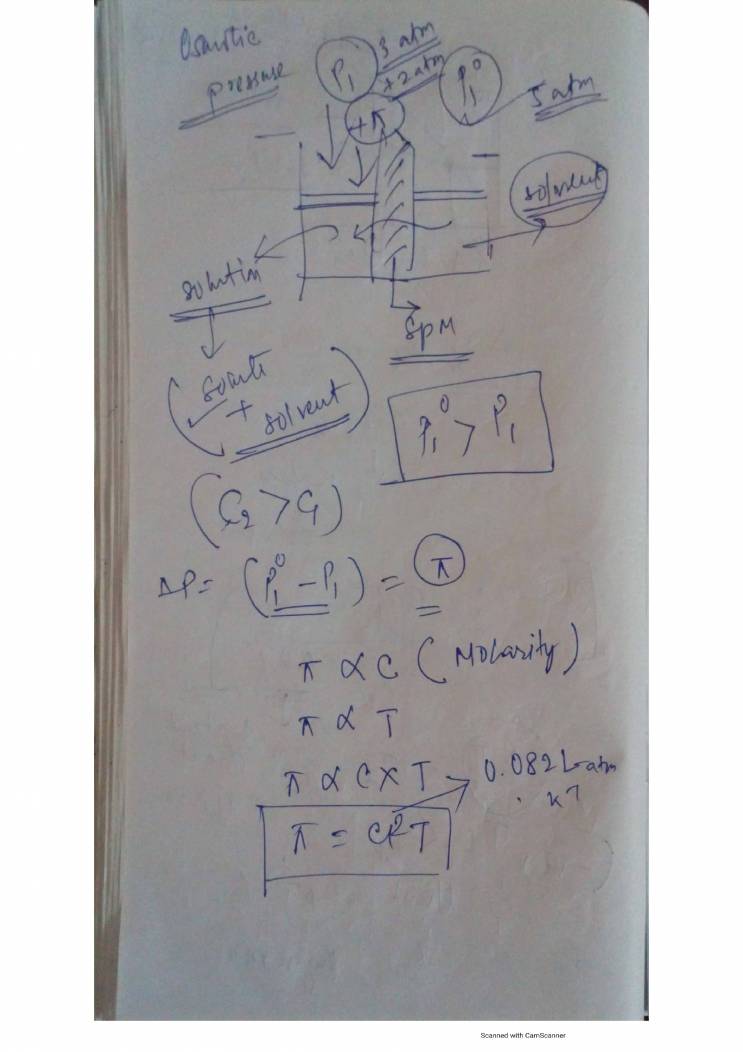 Osmotic
pressure
P₁ 3 atm
+2 atm
+π
P₁⁰
5 atm
solvent
solution
SPM
(solute
+
solvent)
P₁⁰ > P₁
(C₂ > C₁)
ΔP = (P₁⁰ – P₁) = π
π ∝ C (Molarity)
π ∝ T
π ∝ C × T
0.082 L-atm
π = CRT
Scanned with CamScanner